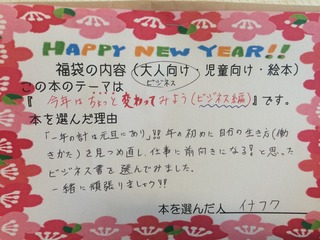 HAPPY NEW YEAR!!
福袋の内容（大人向け・児童向け・絵本）
ビジネス
この本のテーマは
『今年はちょっと変わってみよう（ビジネス編）』です。
本を選んだ理由
「一年の計は元旦にあり」!!年の初めに自分の生き方（働
きかた）を見つめ直し、仕事に前向きになる?と思った
ビジネス書を選んでみました。
一緒に頑張りましょう!!
本を選んだ人 イナフク